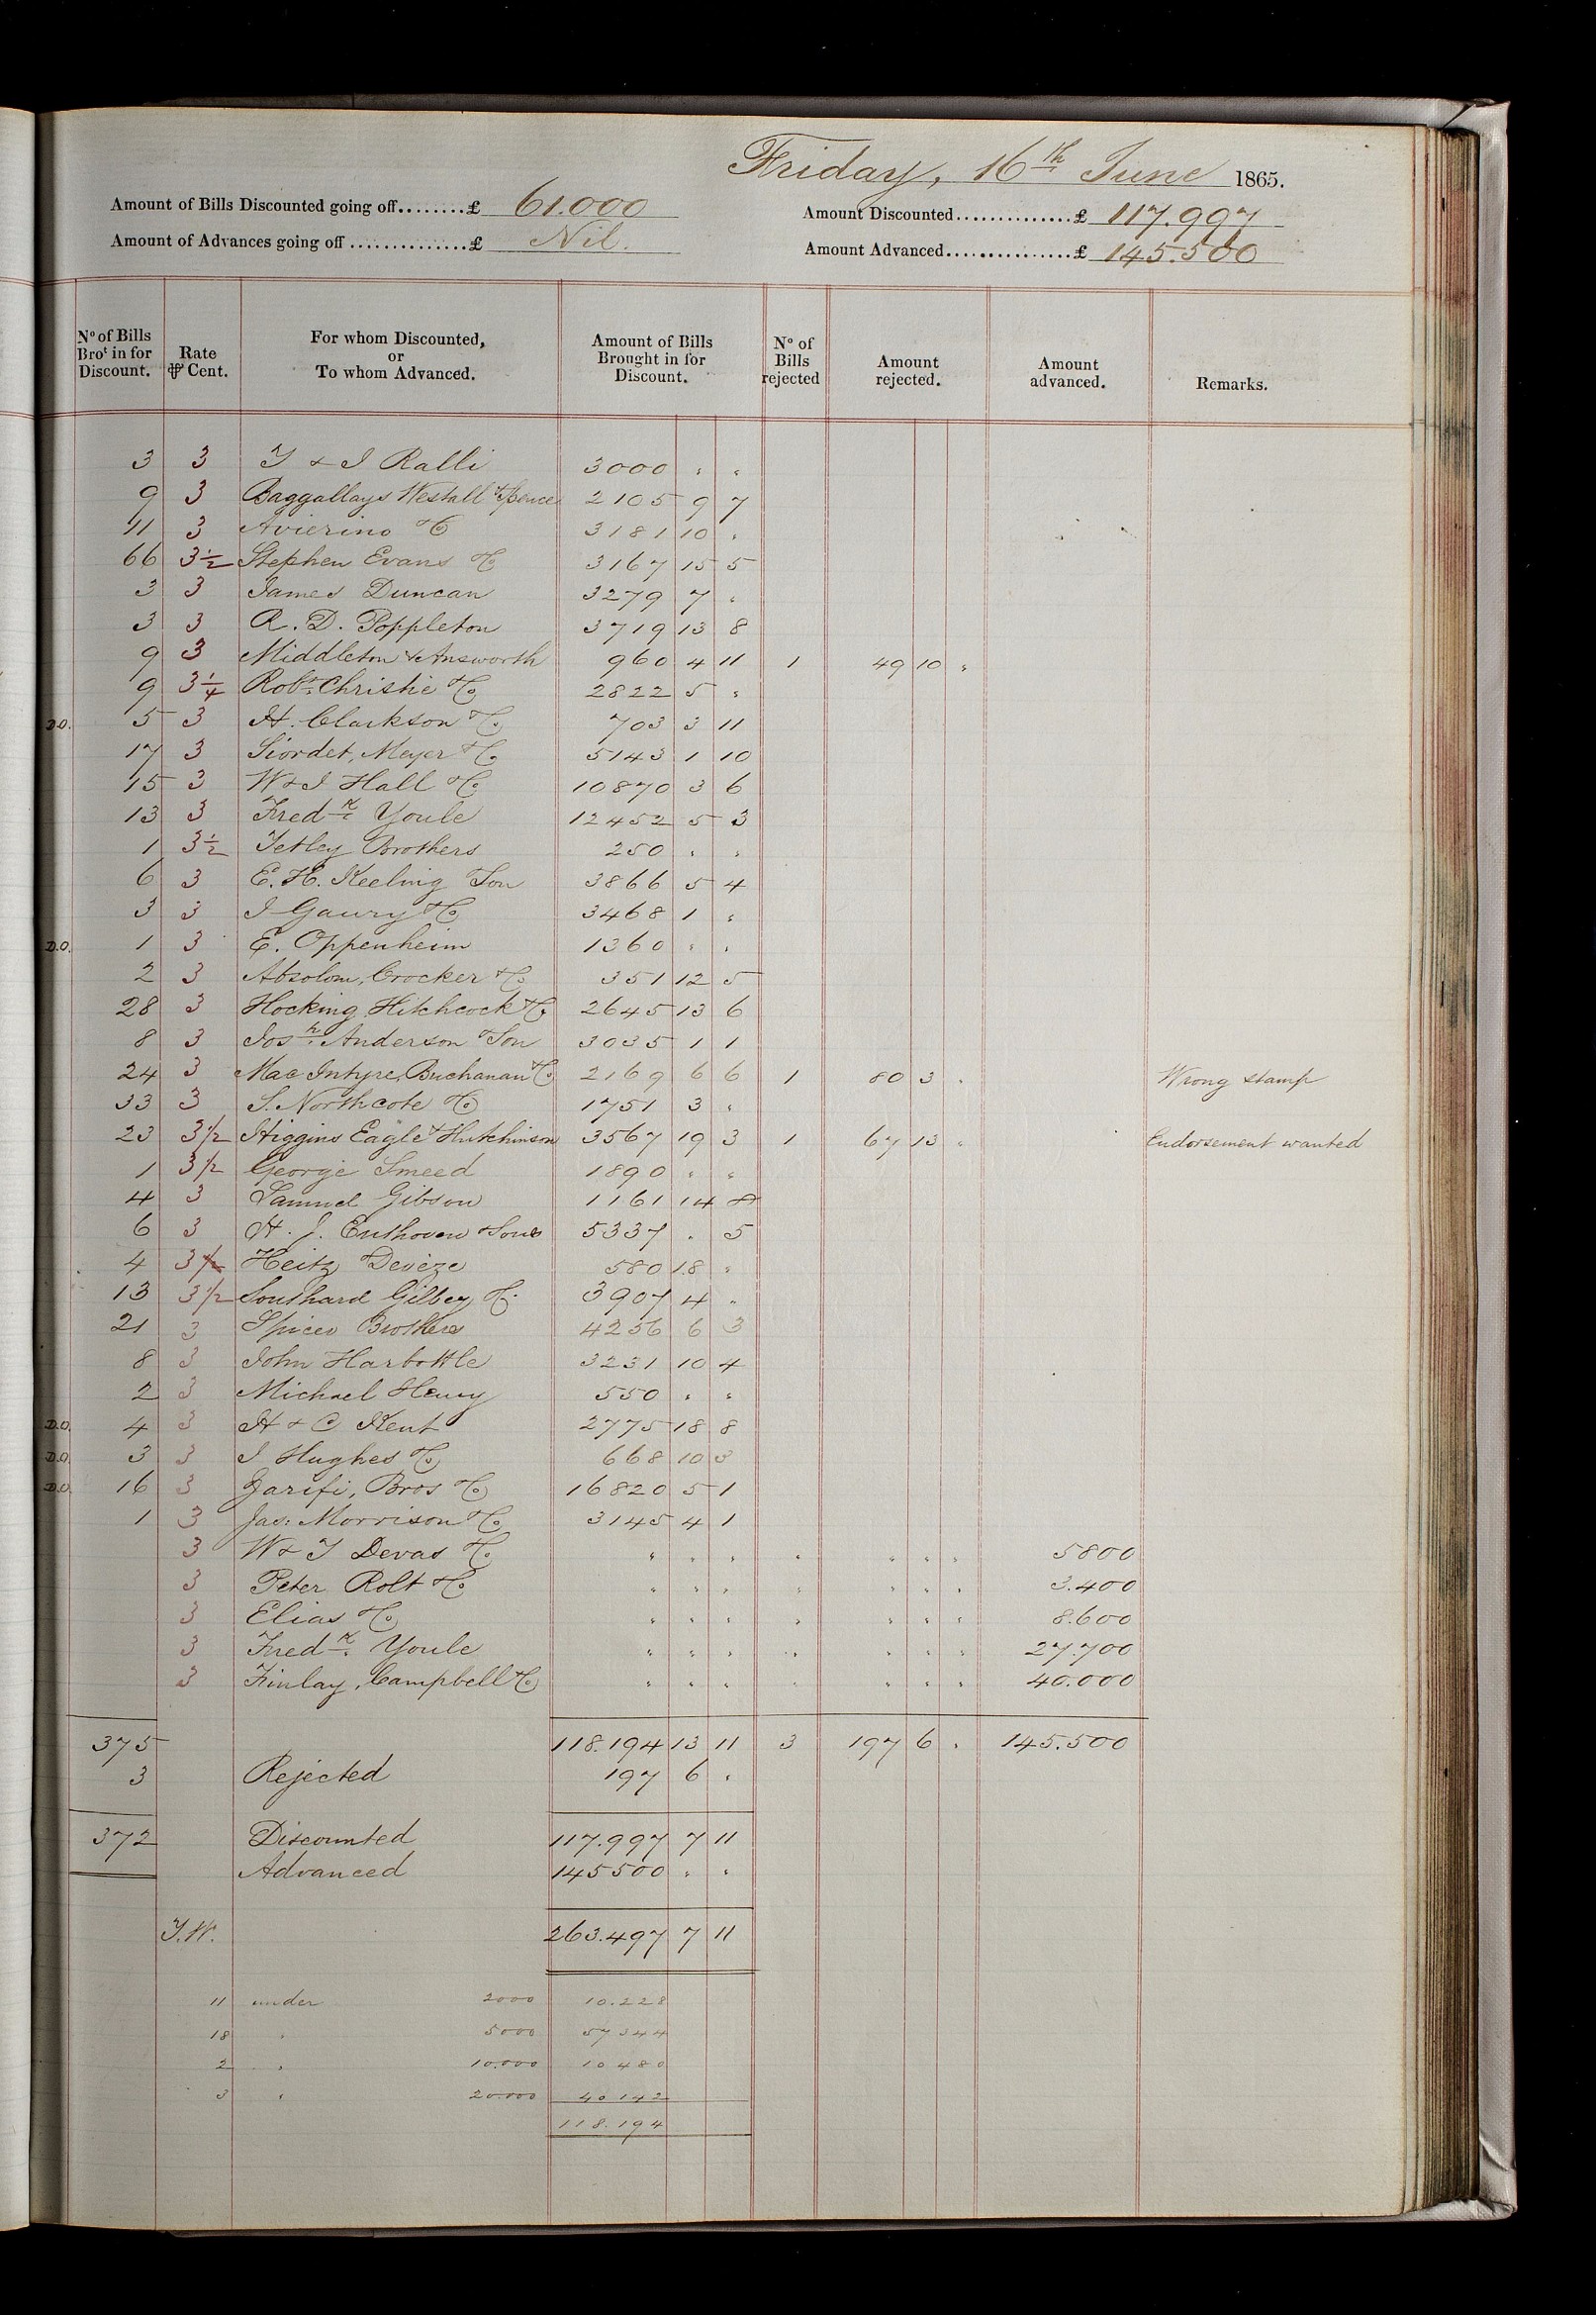 Friday, 16th June 1865.
Amount of Bills Discounted going off........£ 61.000
Amount Discounted..............£ 117.997
Amount of Advances going off ...............£ Nil.
Amount Advanced...............£ 145.500
No of Bills Brot in for Discount. Rate ⅌ Cent. For whom Discounted, or To whom Advanced. Amount of Bills Brought in for Discount. No of Bills rejected Amount rejected. Amount advanced. Remarks.
3 3 T & I Ralli 3000 " "
9 3 Baggallays Westall & Spence 2105 9 7
11 3 Avierino & Co 3181 10 "
66 3½ Stephen Evans & Co 3167 15 5
3 3 James Duncan 3279 7 "
3 3 R. D. Poppleton 3719 13 8
9 3 Middleton & Answorth 960 4 11 1 49 10 "
9 3¼ Robt Christie & Co 2822 5 "
D.O. 5 3 H. Clarkson & Co 703 3 11
17 3 Siordet, Meyer & Co 5143 1 10
15 3 W & I Hall & Co 10870 3 6
13 3 Fredk Youle 12452 5 3
1 3½ Tetley Brothers 250 " "
6 3 E. H. Keeling & Son 3866 5 4
3 3 I Gaury & Co 3468 1 "
D.O. 1 3 E. Oppenheim 1360 " "
2 3 Absolom, Crocker & Co 351 12 5
28 3 Hocking Hitchcock & Co 2645 13 6
8 3 Josh Anderson & Son 3035 1 1
24 3 Mac Intyre, Buchanan & Co 2169 6 6 1 80 3 " Wrong stamp
33 3 S. Northcote & Co 1751 3 "
23 3½ Higgins Eagle & Hutchinson 3567 19 3 1 67 13 " Endorsement wanted
1 3½ George Smeed 1890 " "
4 3 Samuel Gibson 1161 14 8
6 3 H. J. Enthoven & Sons 5337 " 5
4 3½ Heitz & Devèze 580 18 "
13 3½ Southard Gilbey & Co 3907 4 "
21 3 Spicer Brothers 4256 6 3
8 3 John Harbottle 3231 10 4
2 3 Michael Henry 550 " "
D.O. 4 3 H & C Kent 2775 18 8
D.O. 3 3 I Hughes & Co 668 10 3
D.O. 16 3 Zarifi, Bros & Co 16820 5 1
1 3 Jas: Morrison & Co 3145 4 1
3 W & T Devas & Co " " " " " " " 5800
3 Peter Rolt & Co " " " " " " " 3.400
3 Elias & Co " " " " " " " 8.600
3 Fredk Youle " " " " " " " 27.700
3 Finlay, Campbell & Co " " " " " " " 40.000
375 118.194 13 11 3 197 6 " 145.500
3 Rejected 197 6 "
372 Discounted 117.997 7 11
Advanced 145500 " "
T.W. 263.497 7 11
11 under 2000 10.228
18 " 5000 57344
2 " 10.000 10480
3 " 20.000 40142
118.194